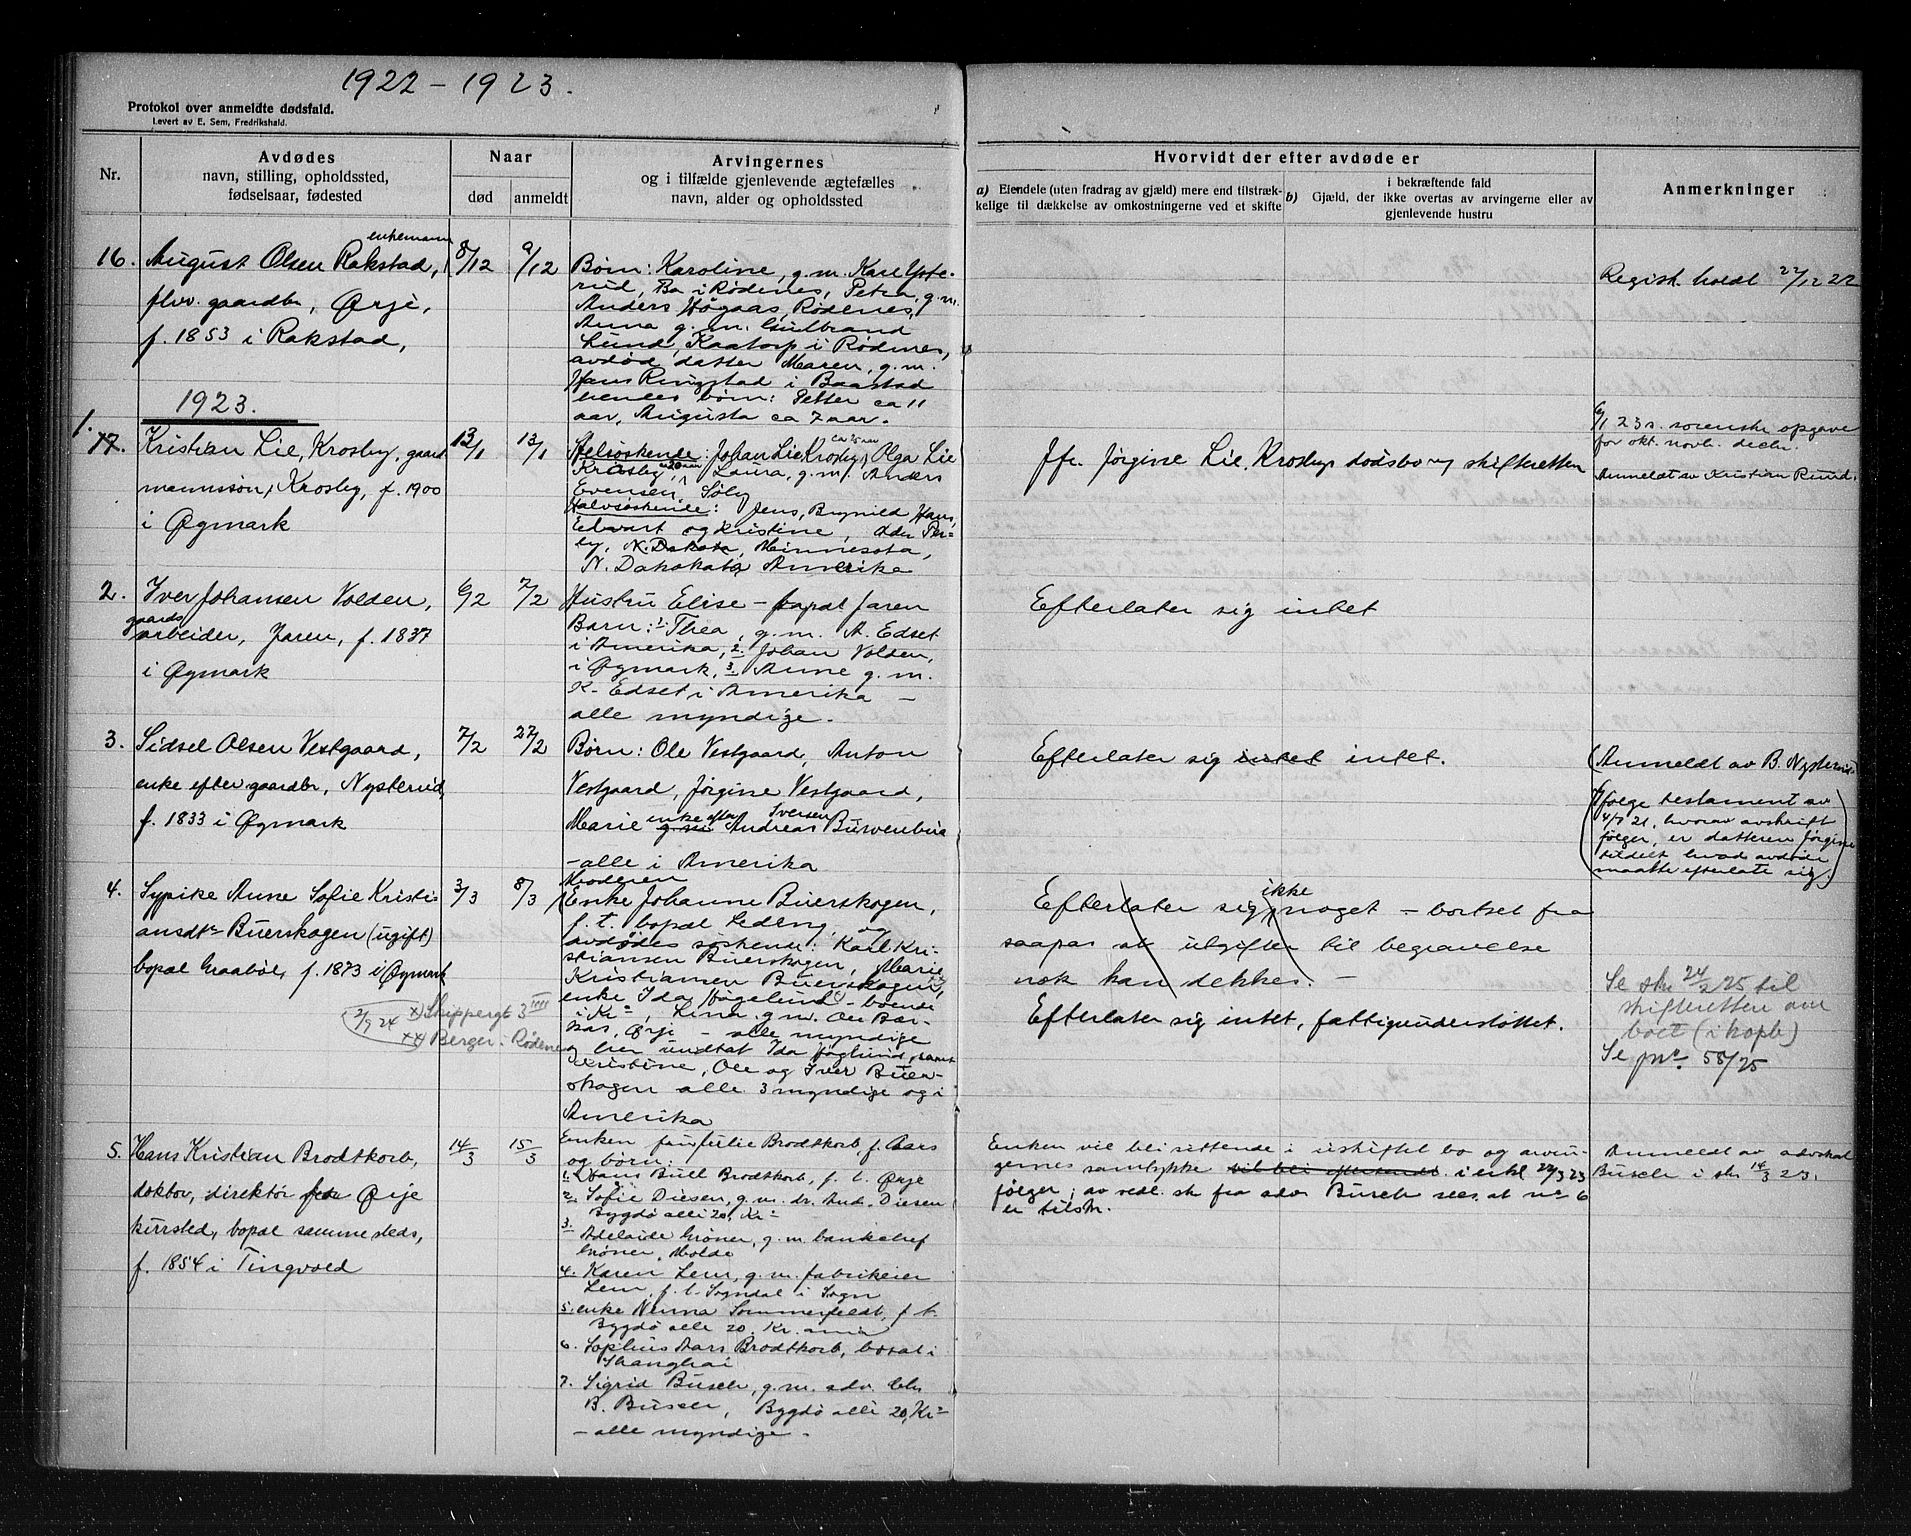 1922 – 1923.
Protokol over anmeldte dødsfald.
Levert av E. Sem, Fredrikshald.
Nr.
Avdødes
navn, stilling, opholdssted,
fødselsaar, fødested
Naar
død
anmeldt
Arvingernes
og i tilfælde gjenlevende ægtefælles
navn, alder og opholdssted
Hvorvidt der efter avdøde er
a) Eiendele (uten fradrag av gjæld) mere end tilstræk-
kelige til dækkelse av omkostningerne ved et skifte
i bekræftende fald
b) Gjæld, der ikke overtas av arvingerne eller av
gjenlevende hustru
Anmerkninger
16.
enkemann
August Olsen Rakstad,
flw. gaardbr, Ørje,
f. 1853 i Rakstad,
8/12
9/12
Børn: Karoline, g.m. Karl Yste-
rud, Ba i Rødenes, Petra, g.m.
Anders Høgaas, Rødenes,
Anna g.m. Gulbrand
Lund, Kaatorp i Rødenes,
avdød datter Maren, g.m.
Hans Ringstad i Baastad
hendes børn: Petter ca 11
aar, Augusta ca 7 aar.
Regist. holdt 22/12 22
1923.
1.
17.
Kristian Lie, Krosby, gaard
mannssøn, Krosby, f. 1900
i Øymark
13/1
13/1
Helsøskende: Johan Lie Krosby, Olga Lie
Krosby, Laura, g.m. Anders
Evensen, Søly
Halvsøskende: Jens, Brynild, Hans,
Edvart og Kristine,
N. Dakota, Minnesota,
N. Dakokata Amerika
Jfr. Jørgine Lie, Krosbys dødsbo og skifteretten
6/1 23 s. sorenskr opgave
for okt. novb. decbr.
Anmeldt av Kristian Rund.
2.
Iver Johansen Volden,
gaards
arbeider, Jaren, f. 1837
i Øymark
6/2
7/2
Hustru Elise – bopal Jaren
Barn: 1. Thea, g.m. A. Edset
i Amerika, 2. Johan Volden,
i Øymark, 3. Anne g.m.
K. Edset i Amerika –
alle myndige.
Efterlater sig intet
3.
Sidsel Olsen Vestgaard,
enke efter gaardbr, Nysterud,
f. 1833 i Øymark
7/2
27/2
Børn: Ole Vestgaard, Anton
Vestgaard, Jørgine Vestgaard,
enke efter Iversen
Marie g.m. Andreas
– alle i Amerika
Efterlater sig intet intet.
(Anmeldt av B. Nysterud
Ifølge testament av
4/7 21, hvorav avskrift
følger, er datteren Jørgine
tildelt hvad avdøde
maatte efterlate sig.)
4.
Sypike Anne Sofie Kristi-
ansdtr Buerskogen (ugift)
bopal Graabøl, f. 1873 i Øymark
2/9 24 x) Skippergt 3 IIII
xx) Berger i Rødenes
3/3
8/3
Moderen
Enke Johanne Buerskogen,
f.t. bopal Ledeng, og
avdødes søskende: Karl Kri-
stiansen Buerskogen, Marie
Kristiansen Buerskogen,
enke Ida Høgelund – boende
i Kra, Lina g.m. Ole Bær-
kas, Ørje – alle myndige
og her undtat Ida Høglund, samt
Kristine, Ole og Iver Buer-
skogen alle 3 myndige og i
Amerika
ikke
Efterlater sig noget – bortset fra
saapas at utgifter til begravelse
nok kan dekkes. –
Efterlater sig intet, fattigunderstøttet.
Se skr 24/2 25 til
skifteretten om
boet (i kopb)
Se jnr. 58/25
5.
Hans Kristian Brodtkorb,
doktor, direktør Ørje
kursted, bopæl sammesteds,
f. 1854 i Tingvold
14/3
15/3
Enken fru Julie Brodtkorb f. Aars
og børn:
1. Hans Bull Brodtkorb, f.t. Ørje
2. Sofie Diesen, g.m. dr. And. Diesen
Bygdø alle 20, Kra
3. Adelaide Grøner, g.m. bankchef
Grøner, Molde
4. Karen Lem, g.m. fabrikeier
Lem, f.t. Sogndal i Sogn
5. enke Nenna Sommerfeldt, f.t.
Bygdø alle 20. Kr.ania
6. Sophus Aars Brodtkorb, bosat i
Shanghai
7. Sigrid Busch, g.m. adv. Chr
B. Busch, Bygdø alle 20, Kra
– alle myndige –
Enken vil bli sittende i uskiftet bo og arvin-
gernes samtykke vil bli eftersendt. i erkl 22/3 23
følger, av vedl. skr fra adv. Busch sees at nr 6
er tilst.
Anmeldt av advokat
Busch i skr 14/3 23.